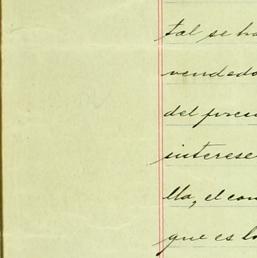 tal se ha
vendedo
del prese
interese
lla, el con
que es lo